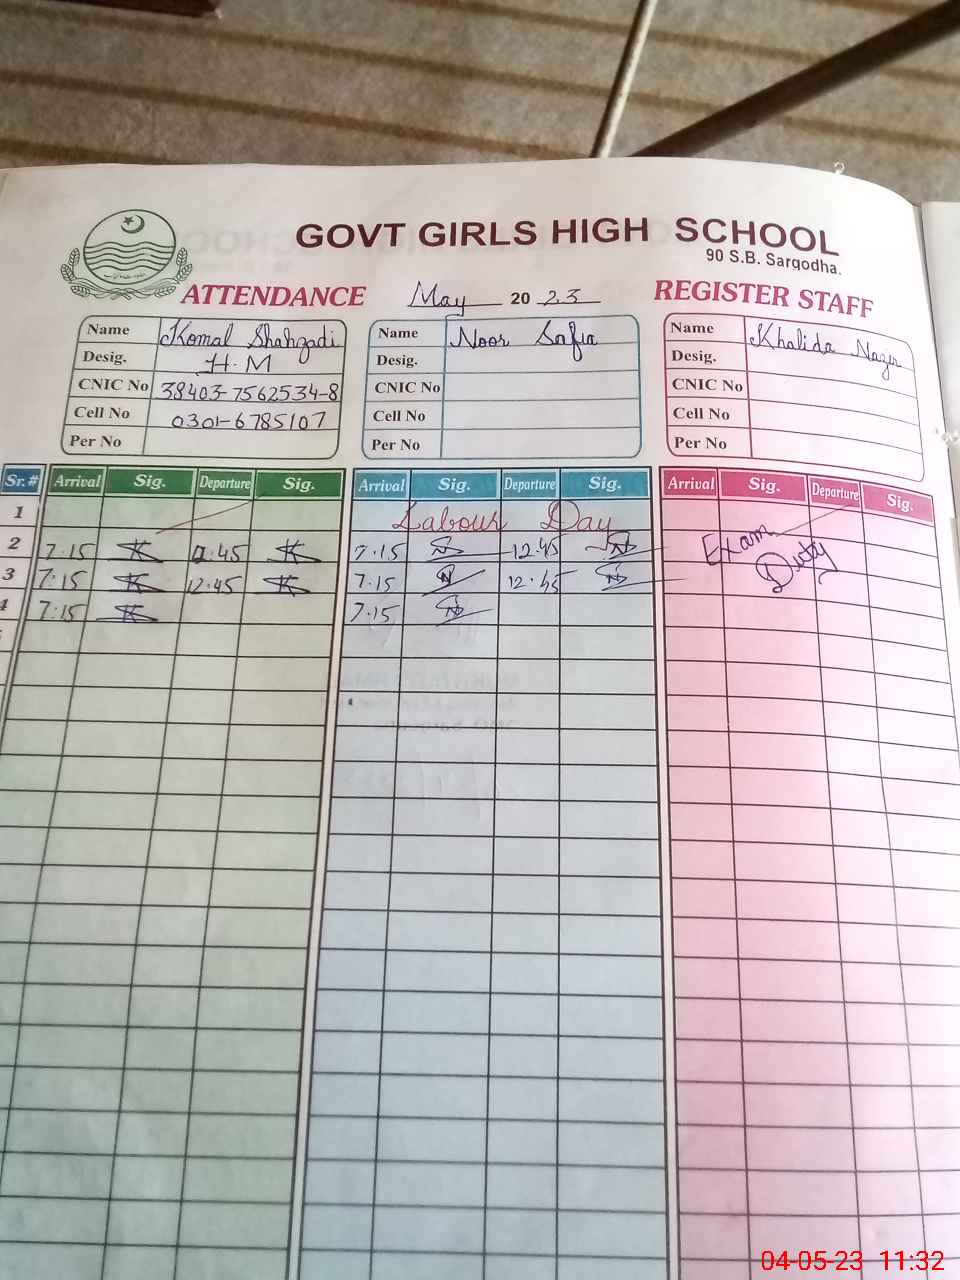 GOVT GIRLS HIGH SCHOOL
90 S.B. Sargodha.
ATTENDANCE May 2023 REGISTER STAFF
Name Komal Shahzadi
Desig. H.M
CNIC No 38403-7562534-8
Cell No 0301-6785107
Per No
Name Noor Safia
Desig.
CNIC No
Cell No
Per No
Name Khalida Nazir
Desig.
CNIC No
Cell No
Per No
Sr.# Arrival Sig. Departure Sig. Arrival Sig. Departure Sig. Arrival Sig. Departure Sig.
1 Labour Day
2 7.15 12.45 7.15 12.45 Exam
3 7.15 12.45 7.15 12.45 Duty
4 7.15 7.15
04-05-23 11:32